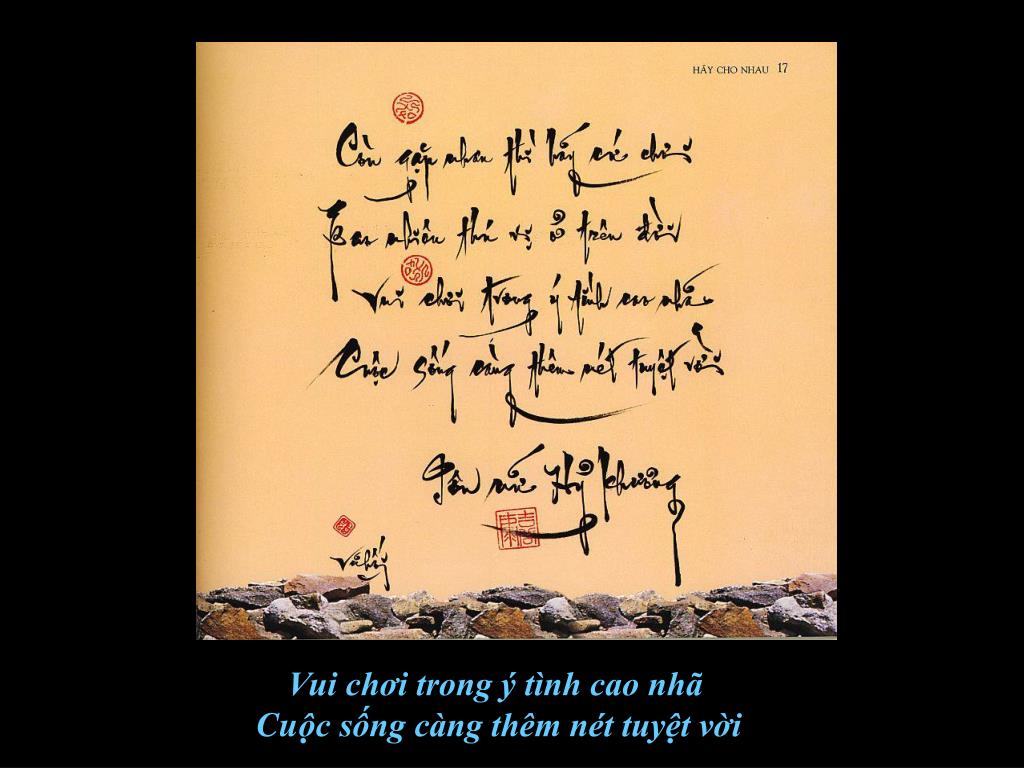 HÃY CHO NHAU 17
Còn gặp nhau thì hãy cứ chơi
Bao nhiêu thú vị ở trên đời
Vui chơi trong ý tình cao nhã
Cuộc sống càng thêm nét tuyệt vời
Tôn nữ Hỷ Khương
Vui chơi trong ý tình cao nhã
Cuộc sống càng thêm nét tuyệt vời